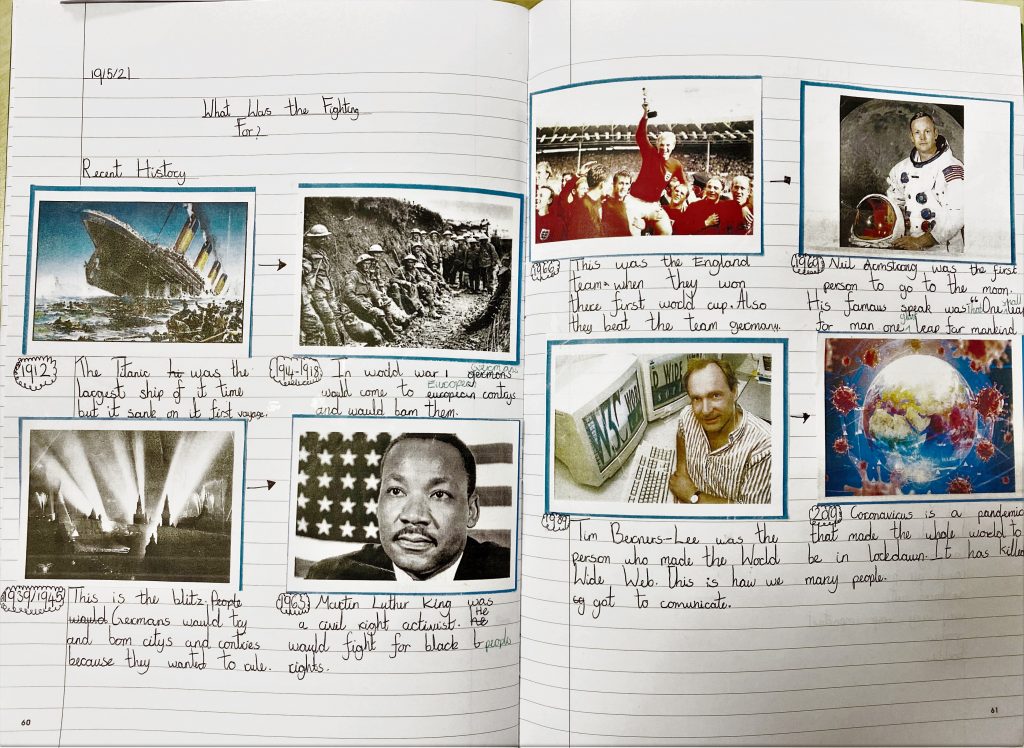 19/5/21
What Was the Fighting
For?
Recent History
1912
The Titanic was the
largest ship of it time
but it sank on it first voyage.
1914-1918
In world war 1 germons
would come to european contrys
European
and would bom them.
1939/1945
This is the blitz. People
would Germans would try
and bom citys and contries
because they wanted to rule.
1963
Martin Luther King was
a civil right activist. he
He
would fight for black people
rights.
1966
This was the England
team when they won
there first world cup. Also
they beat the team germany.
1969
Neil Armstrong was the first
person to go to the moon.
His famous speak was "That One small
for man one leap for mankind
1989
Tim Berners-Lee was the
person who made the World
Wide Web. This is how we
got to comunicate.
2019
Coronavirus is a pandemic
that made the whole world to
be in lockdown. It has killed
many people.
D WIDE
60
61